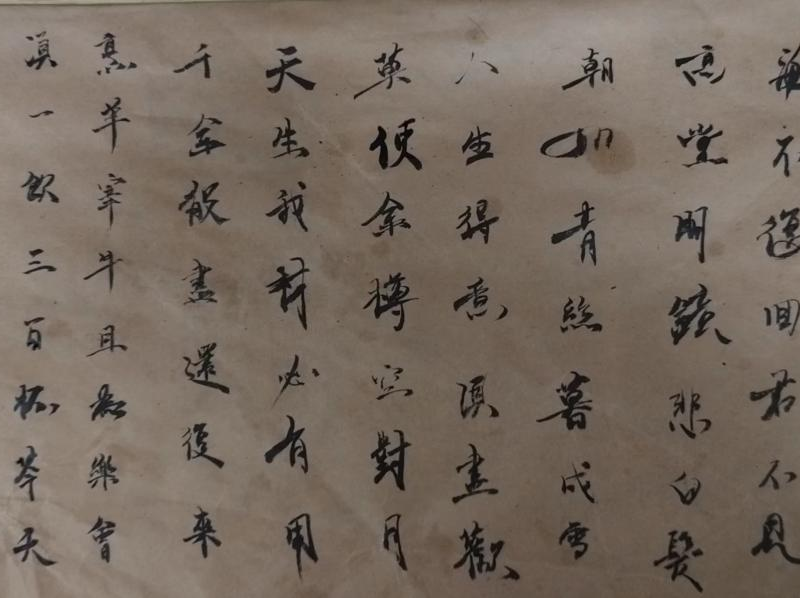 海不復回君不見
高堂明鏡悲白髮
朝如青絲暮成雪
人生得意須盡歡
莫使金樽空對月
天生我材必有用
千金散盡還復來
烹羊宰牛且為樂會
須一飲三百杯岑夫